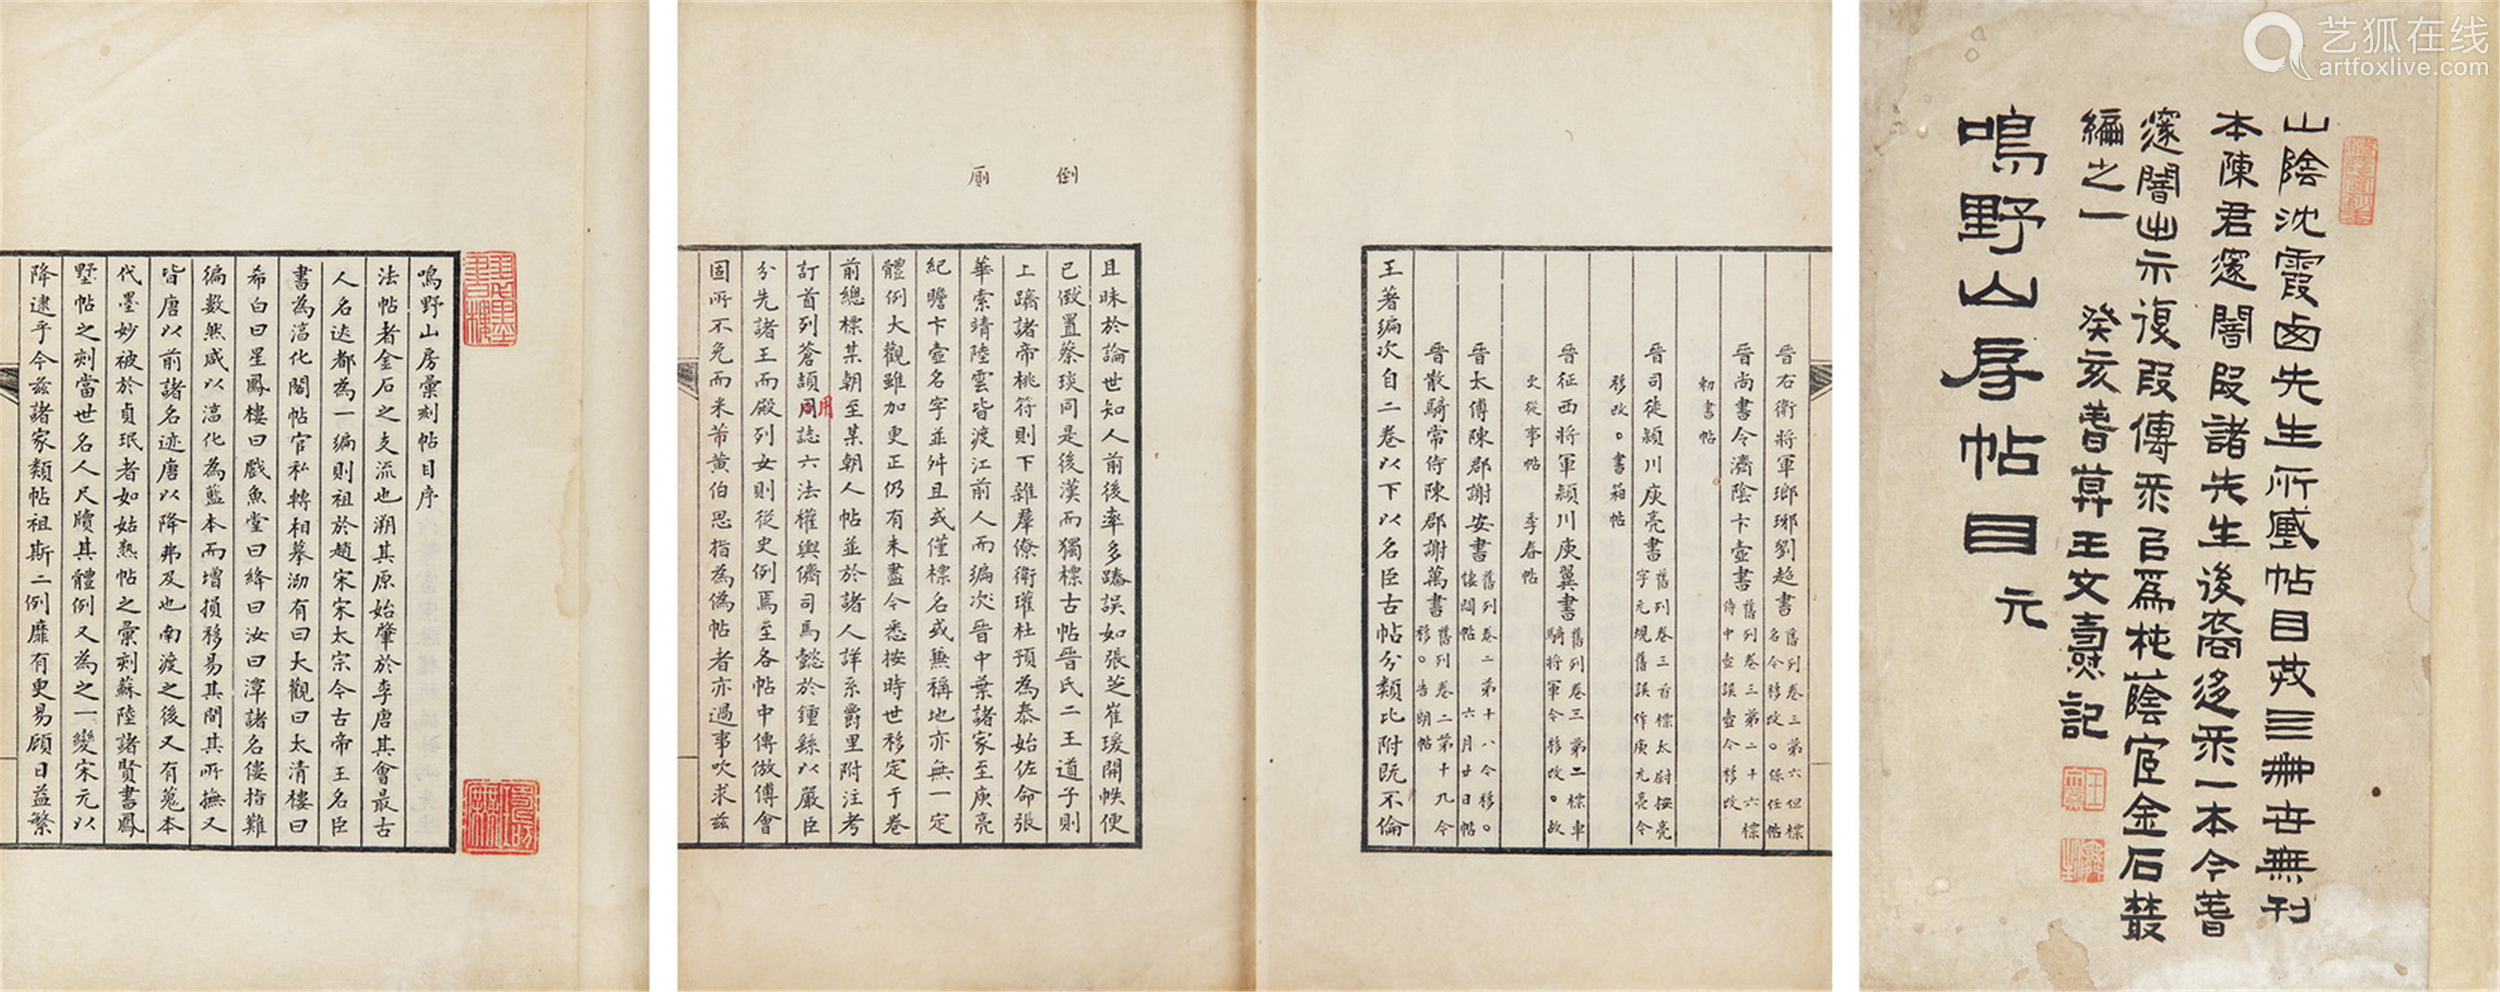 艺狐在线
artfoxlive.com
山陰沈霞西先生所藏帖目共三冊世無刊
本陳君邃闇段諸先生後裔迻录一本今春
邃闇出示復叚傳录以為枕蔭宧金石叢
編之一 癸亥春莫王文燾記
鳴野山房帖目 元
晉右衛將軍瑯琊劉超書 舊列卷三第六但標名今移改。保任帖
晉尚書令濟陰卞壼書 舊列卷三第二十六標侍中壺誤壼今移改
初書帖
晉司徒穎川庾亮書 舊列卷三首標太尉按亮字元規舊誤作庾元亮今
移改。書箱帖
晉征西將軍穎川庾翼書 舊列卷三第二標車騎將軍今移改。故
吏從事帖 季春帖
晉太傅陳郡謝安書 舊列卷二第十八今移。悽悶帖 六月廿日帖
晉散騎常侍陳郡謝萬書 舊列卷二第十九今移。告朗帖
王著編次自二卷以下以名臣古帖分類比附既不倫
倒
廁
且昧於論世知人前後率多踳誤如張芝崔瑗開帙便
已倣置蔡琰同是後漢而獨標古帖晉氏二王道子則
上躋諸帝桃符則下雜羣僚衛瓘杜預為泰始佐命張
華索靖陸雲皆渡江前人而編次晉中葉諸家至庾亮
紀瞻卞壼名字並舛且或僅標名或無稱地亦無一定
體例大觀雖加更正仍有未盡今悉按時世移定于卷
前總標某朝至某朝人帖並於諸人詳系爵里附注考
訂首列蒼頡用誌六法權輿儕司馬懿於鍾繇以嚴臣
分先諸王而殿列女則從史例焉至各帖中傳倣傅會
固所不免而米芾黃伯思指為偽帖者亦過事吹求茲
鳴野山房彙刻帖目序
法帖者金石之支流也溯其原始肇於李唐其會最古
人名迹都為一編則祖於趙宋宋太宗令古帝王名臣
書為淳化閣帖官私轉相摹泐有曰大觀曰太清樓曰
希白曰星鳳樓曰戲魚堂曰絳曰汝曰潭諸名僂指難
徧數然咸以淳化為藍本而增損移易其間其所撫又
皆唐以前諸名迹唐以降弗及也南渡之後又有蒐本
代墨妙被於貞珉者如姑熟帖之彙刻蘇陸諸賢書鳳
墅帖之刻當世名人尺牘其體例又為之一變宋元以
降逮乎今茲諸家類帖祖斯二例靡有更易顧日益繁